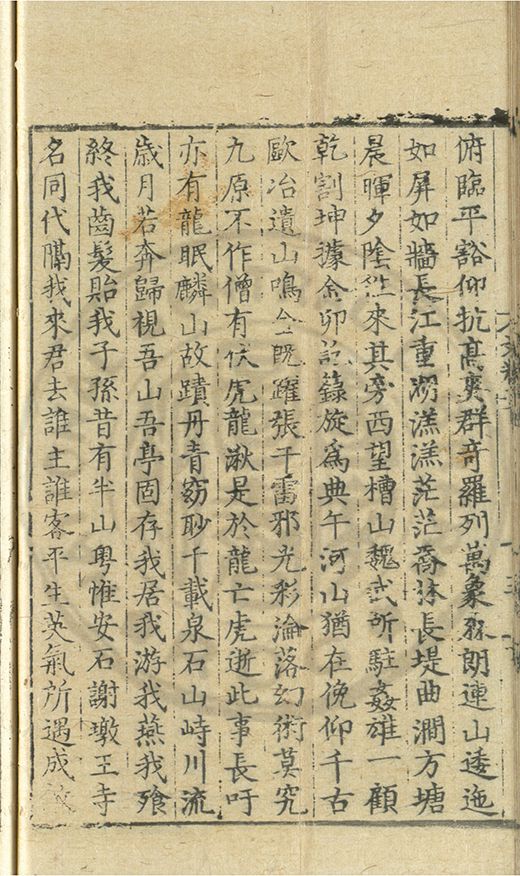 俯臨平豁仰抗髙爽群竒羅列萬象森朗連山逶迤
如屏如牆長江重湖漾漾茫茫喬林長堤曲澗方塘
晨暉夕陰徃來其旁西望檣山魏武所駐姦雄一顧
乾割坤據金卯記籙旋為典午河山猶在俛仰千古
歐冶遺山鳴金既躍張千雷邪光彩淪落幻術莫究
九原不作僧有伏虎龍湫是於龍亡虎逝此事長吁
亦有龍眠麟山故蹟丹青窈眇千載泉石山峙川流
歲月若奔歸視吾山吾亭固存我居我游我燕我飱
終我齒髮貽我子孫昔有半山粤惟安石謝墩王寺
名同代隔我來君去誰主誰客平生英氣所遇成